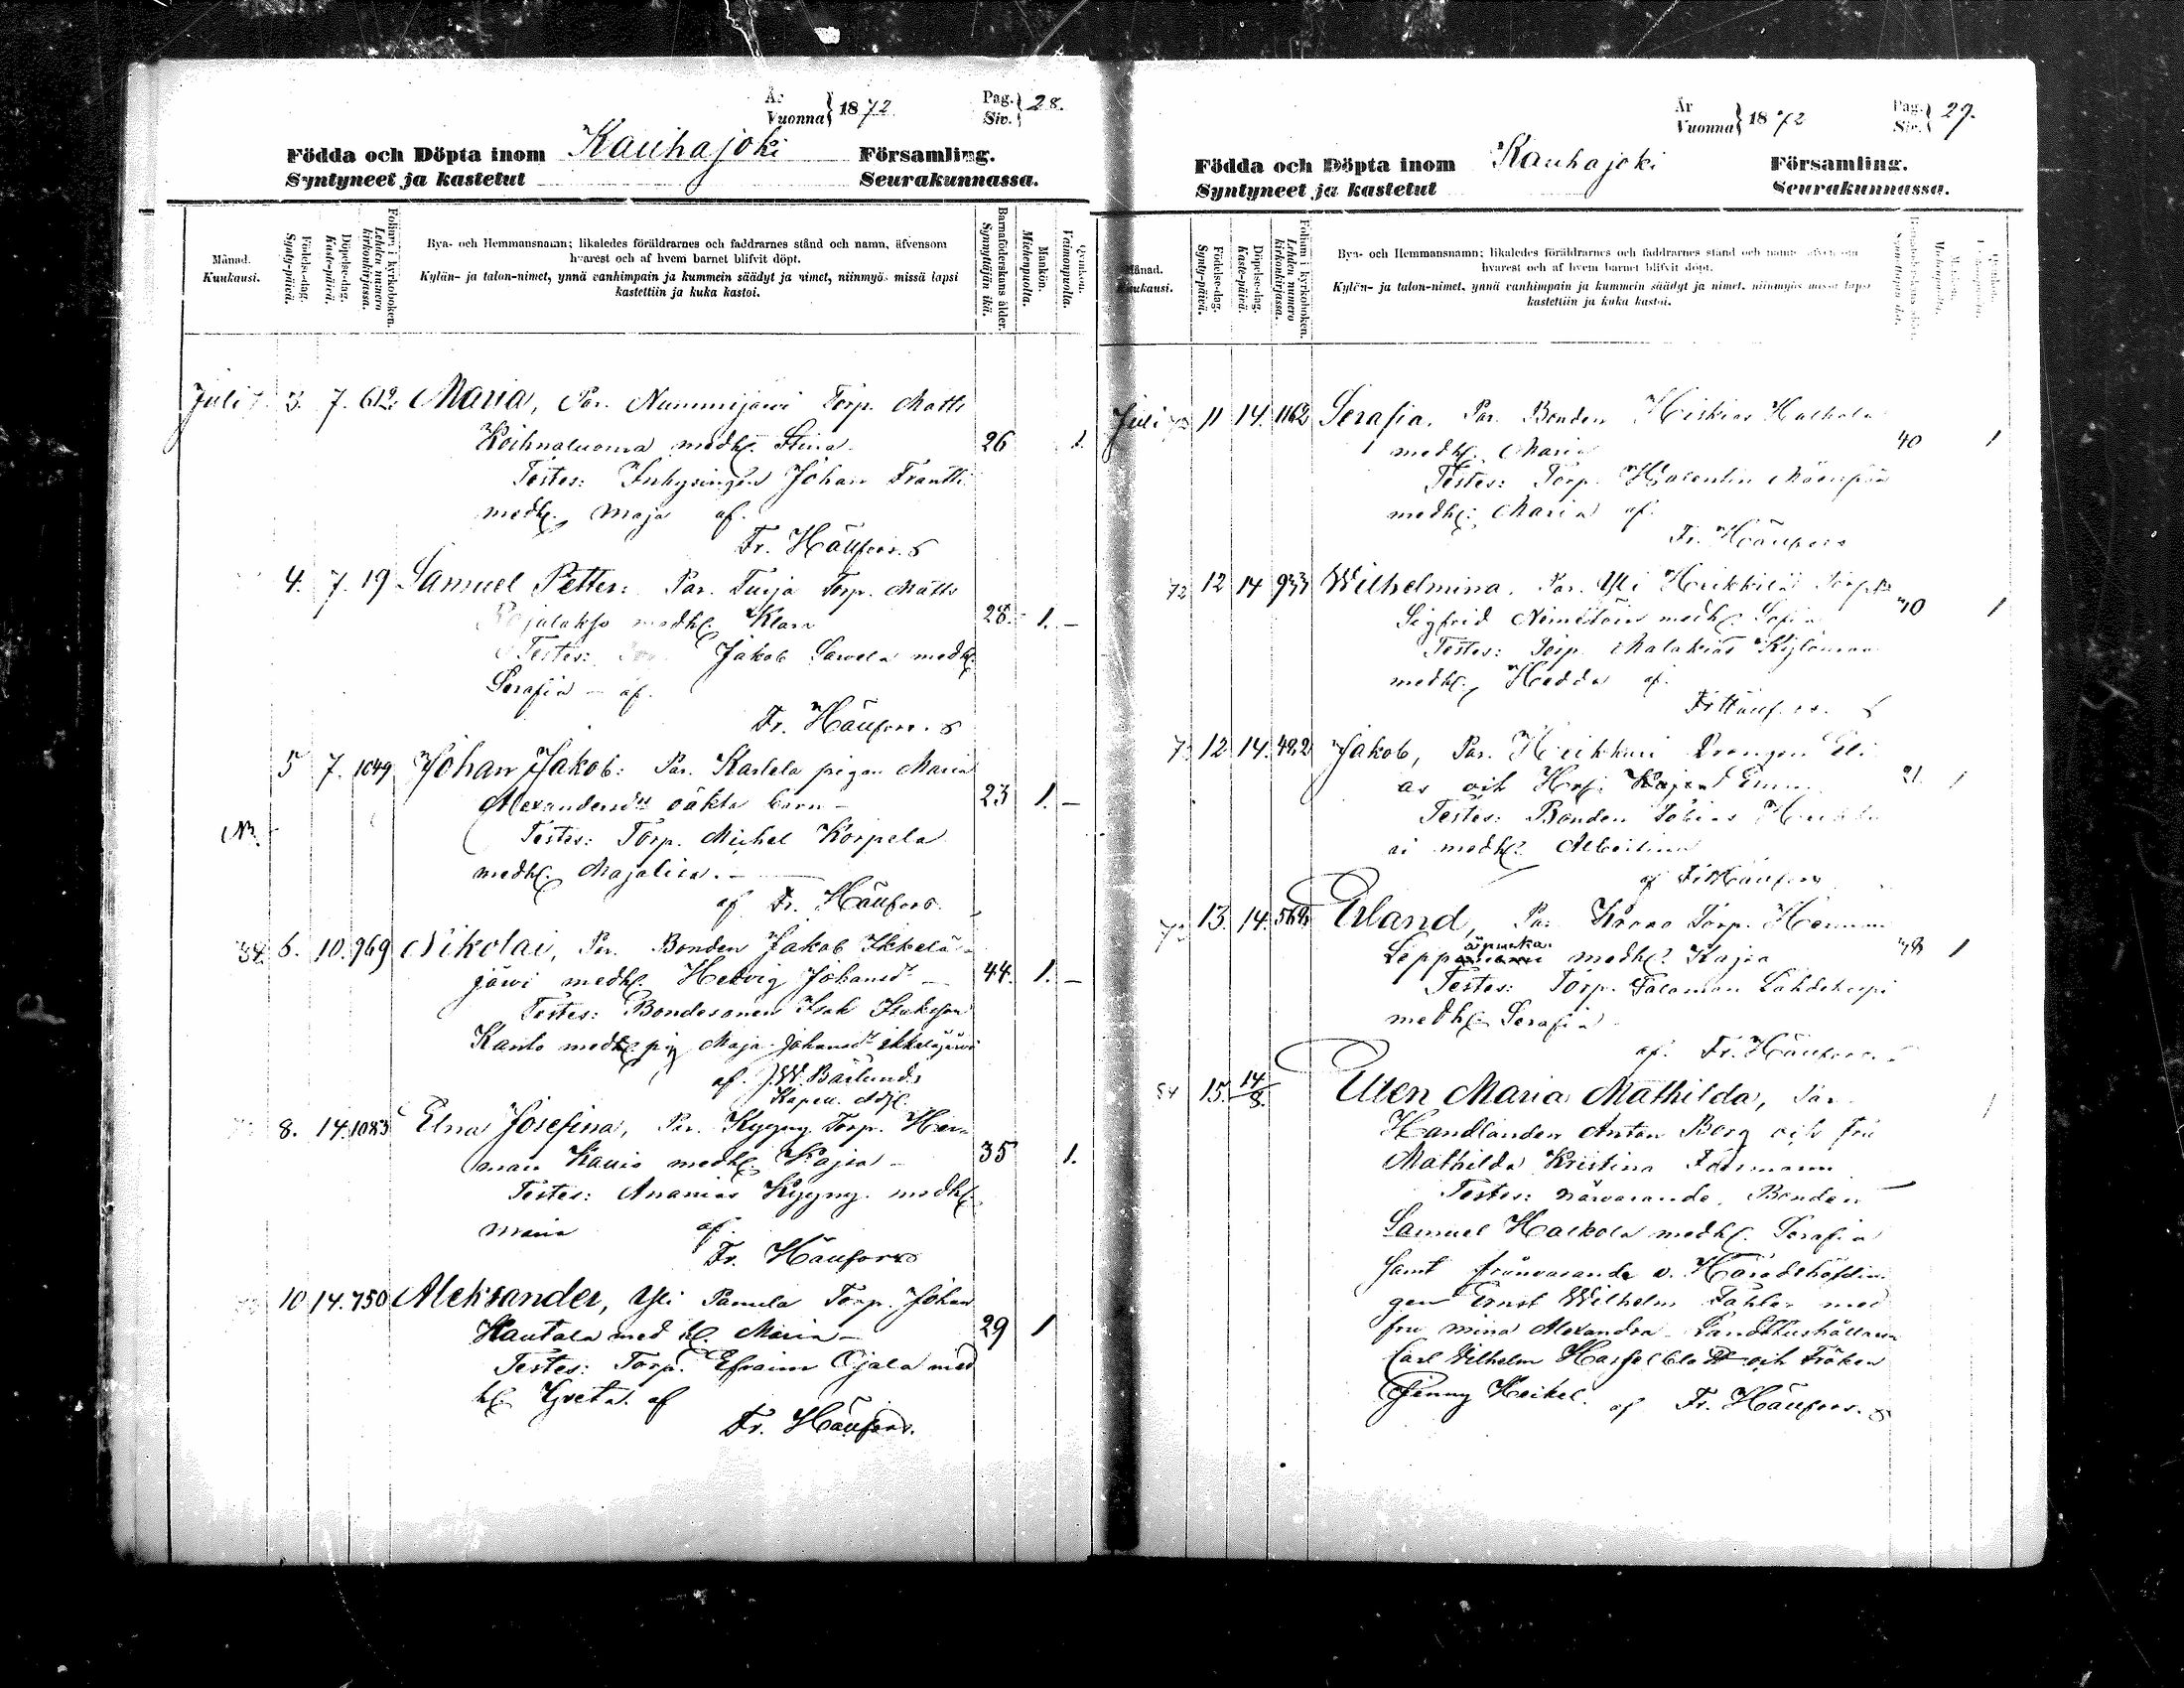 År
Vuonna} 1872
Pag.
Siv.} 28.
Födda och Döpta inom Kauhajoki Församling.
Syntyneet ja kastetut Seurakunnassa.
Månad.
Kuukausi.
Födelse-dag.
Synty-päivä.
Döpelse-dag.
Kaste-päivä.
Folium i kyrkoboken.
Lehden numero
kirkonkirjassa.
Bya- och Hemmansnamn; likaledes föräldrarnes och faddrarnes stånd och namn, äfvensom
hvarest och af hvem barnet blifvit döpt.
Kylän- ja talon-nimet, ynnä vanhimpain ja kummein säädyt ja nimet, niinmyös missä lapsi
kastettiin ja kuka kastoi.
Barnaföderskans ålder.
Synnyttäjän ikä.
Mankön.
Miehenpuolta.
Qvinkön.
Vaimonpuolta.
Juli 3. 7. 612 Maria, Par. Nummijärvi Torp. Matts
Koihnaluoma medh. Stina 26 1.
Testes: Inhysingen Johan Frantti
medh. Maja af.
Fr. Häufors
4. 7. 19 Samuel Petter: Par. Turja Torp. Matts
Rajalakso medh. Klara 28. 1. –
Testes: Jakob Sawela medh.
Serafia – af.
Fr. Häufors.
5 7. 1049 Johan Jakob: Par. Karhela pigan Maria
Alexandersdr oäkta barn – 23 1. –
Testes: Torp. Michel Korpela
medh. Majalisa. –
af Fr. Häufors.
6. 10. 969 Nikolai, Par. Bonden Jakob Ikkelä-
järvi medh. Hedvig Johansdr – 44. 1. –
Testes: Bondesonen Isak Isaksson
Kanto med pig Maja Johansdr ikkeläjärvi
af. J.W. Bärlund,
Kapell. Adj.
8. 14. 1083 Elna Josefina, Par. Kyyny Torp. Her-
man Kauis medh. Kajsa – 35 1.
Testes: Ananias Kyyny medh.
Maria af.
Fr. Häufors
10 14. 750 Aleksander, Yli Panula Torp. Johan
Hautala med h. Maria – 29 1
Testes: Torp. Efraim Ojala med
h. Greta. af
Fr. Häufors.
År
Vuonna} 1872
Pag.
Siv.} 29.
Födda och Döpta inom Kauhajoki Församling.
Syntyneet ja kastetut Seurakunnassa.
Månad.
Kuukausi.
Födelse-dag.
Synty-päivä.
Döpelse-dag.
Kaste-päivä.
Folium i kyrkoboken.
Lehden numero
kirkonkirjassa.
Bya- och Hemmansnamn; likaledes föräldrarnes och faddrarnes stånd och namn
hvarest och af hvem barnet blifvit döpt.
Kylän- ja talon-nimet, ynnä vanhimpain ja kummein säädyt ja nimet, niinmyös missä lapsi
kastettiin ja kuka kastoi.
Juli 11 14. 1162 Serafia. Par. Bonden Hiskias Halkola
medh. Maria 40 1
Testes: Torp. Valentin Mäenpää
medh: Maria af.
Fr. Häufors
72 12 14 933 Wilhelmina. Par. Yli Heikkilä Torp.
Sigfrid Nimetöin medh. Sofia 40 1
Testes: Torp. Malakias
medh. Hedda af.
Fr Häufors.
12 14. 482 Jakob, Par. Heikkuri Drengen Eli-
as och Emma 21. 1
Testes: Bonden Tobias
medh. Albertina
af Fr Häufors
13. 14. Erland, Par. Krono Torp. Herman
Lepp medh. Kajsa 1
Testes: Torp. Salomon
medh. Serafia
af. Fr. Häufors.
15. 14/8. Ellen Maria Mathilda, Par.
Handlanden Anton Berg och fru
Mathilda Kristina
Testes: närvarande. Bonden
Samuel Halkola medh. Serafia
samt frånvarande v. Häradshöfdin-
gen Ernst Wilhelm med
fru mina Alexandra
Carl Vilhelm Hasselblatt och Fröken
Jenny Heikel. af Fr. Häufors.